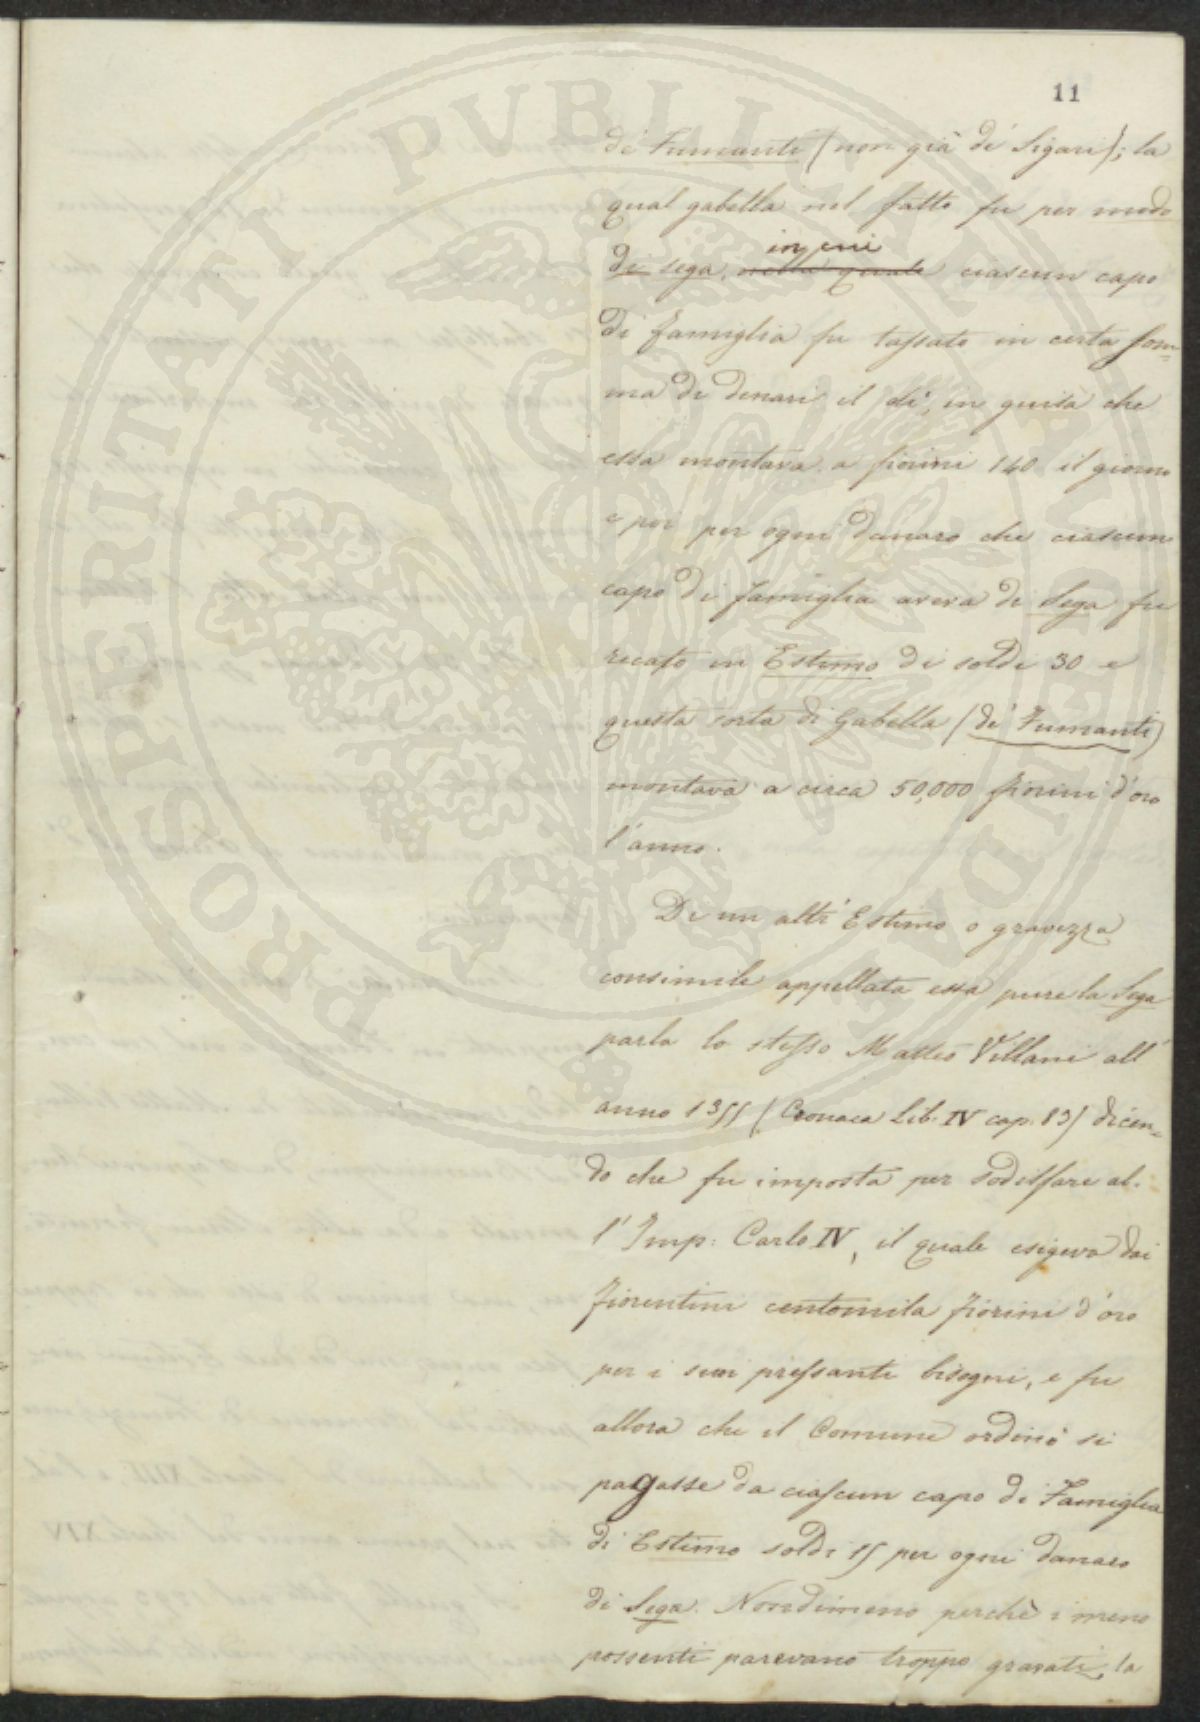 11
de' Fumanti (non già de' Sigari); la
qual gabella nel fatto fu per modo
in cui
di sega, nella quale ciascun capo
di famiglia fu tassato in certa som=
ma di denari il dì, in guisa che
essa montava a fiorini 140 il giorno
e poi per ogni danaro che ciascun
capo di famiglia aveva di Sega fu
recato in Estimo di soldi 30 e
questa sorta di Gabella (de' Fumanti)
montava a circa 50,000 fiorini d'oro
l'anno.
Di un altr' Estimo o gravezza
consimile appellata essa pure la Sega
parla lo stesso Matteo Villani all'
anno 1355 (Cronaca Lib. IV cap. 83) dicen=
do che fu imposta per sodisfare al.
l' Imp: Carlo IV, il quale esigeva dai
fiorentini centomila fiorini d'oro
per i suoi pressanti bisogni, e fu
allora che il Comune ordinò si
pagasse da ciascun capo di Famiglia
di Estimo soldi 15 per ogni danaro
di Sega. Nondimeno perchè i meno
possenti parevano troppo gravati, la
PROSPERITATI PVBLICAE